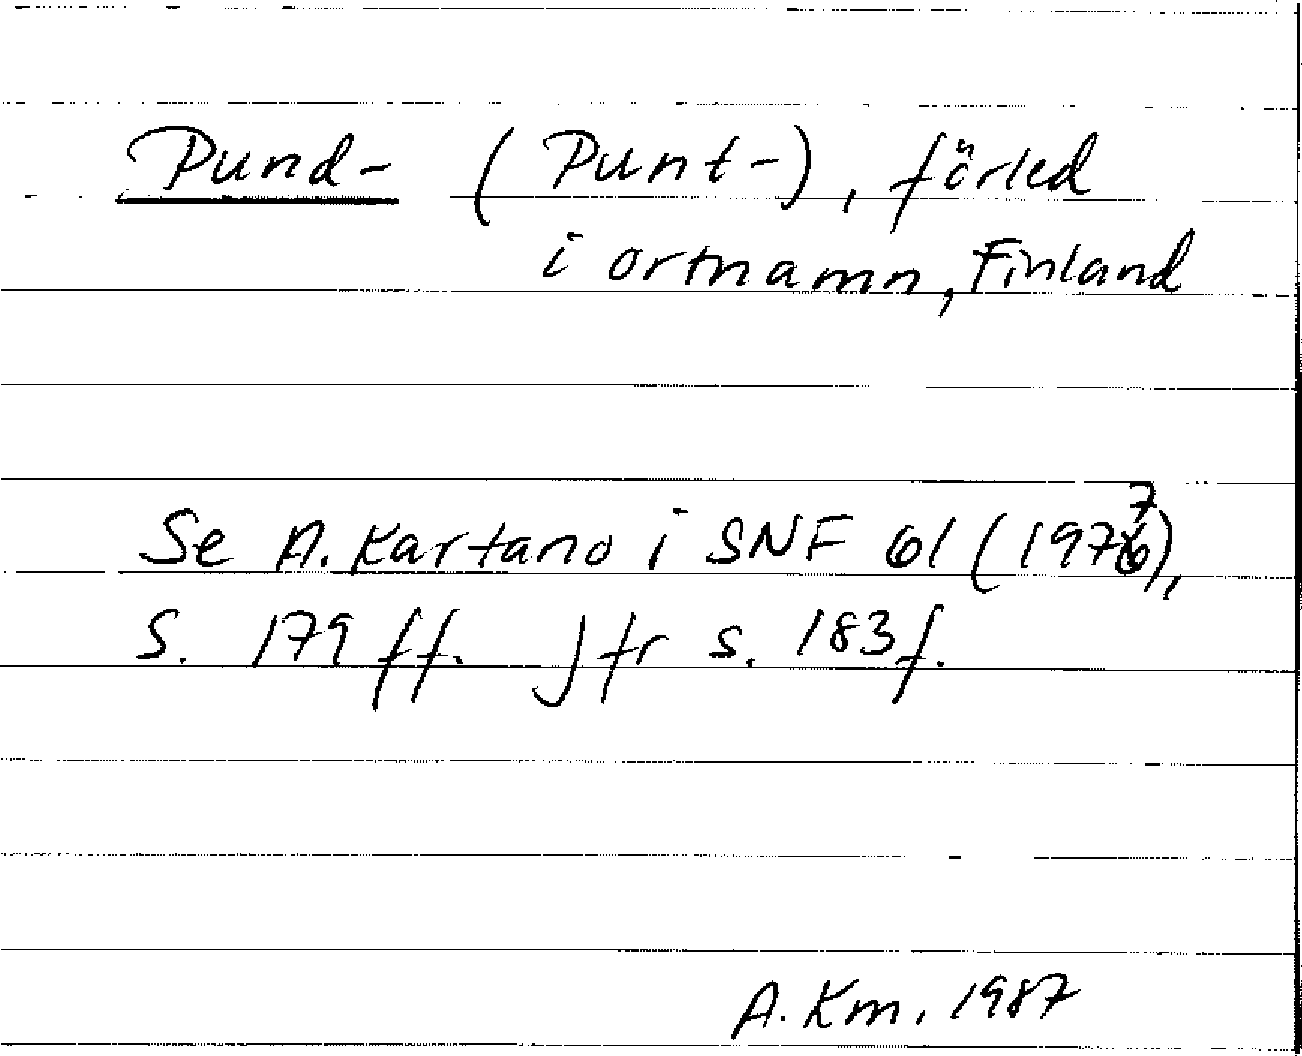 Pund- (Punt-), förled
i ortnamn, Finland
Se A. Kartano i SNF 61 (1977),
s. 179 ff. Jfr s. 183 f.
A. Km. 1987